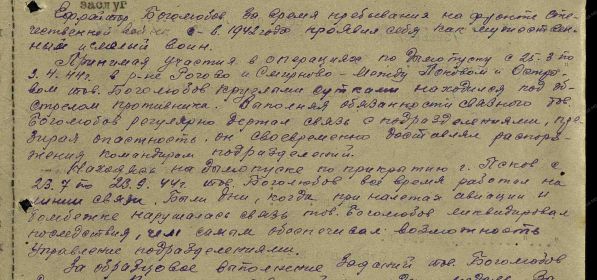 заслуг
Ефрейтор Боголюбов за время пребывания на фронте Оте-
чественной войны с 1942 года проявил себя как мужествен-
ный и смелый воин.
Принимая участия в операциях по дымопуску с 25.3 по
9.4.44г. в р-не Рогово и Смирново - между Псковом и Остро-
вом тов. Боголюбов круглыми сутками находился под об-
стрелом противника. Выполняя обязанности связного тов.
Боголюбов регулярно держал связь с подразделениями, пре-
зирая опастность, он своевременно доставлял распоря-
жения командирам подразделений.
Находясь на дымопуске по прикрытию г. Псков с
23.7 по 23.9.44г тов. Боголюбов всё время работал на
линии связи. Были дни, когда при налётах авиации и
бомбежке нарушалась связь тов. Боголюбов ликвидировал
последствия, чем самым обеспечивал возможность
управление подразделениями.
За образцовое выполнение заданий тов. Боголюбов